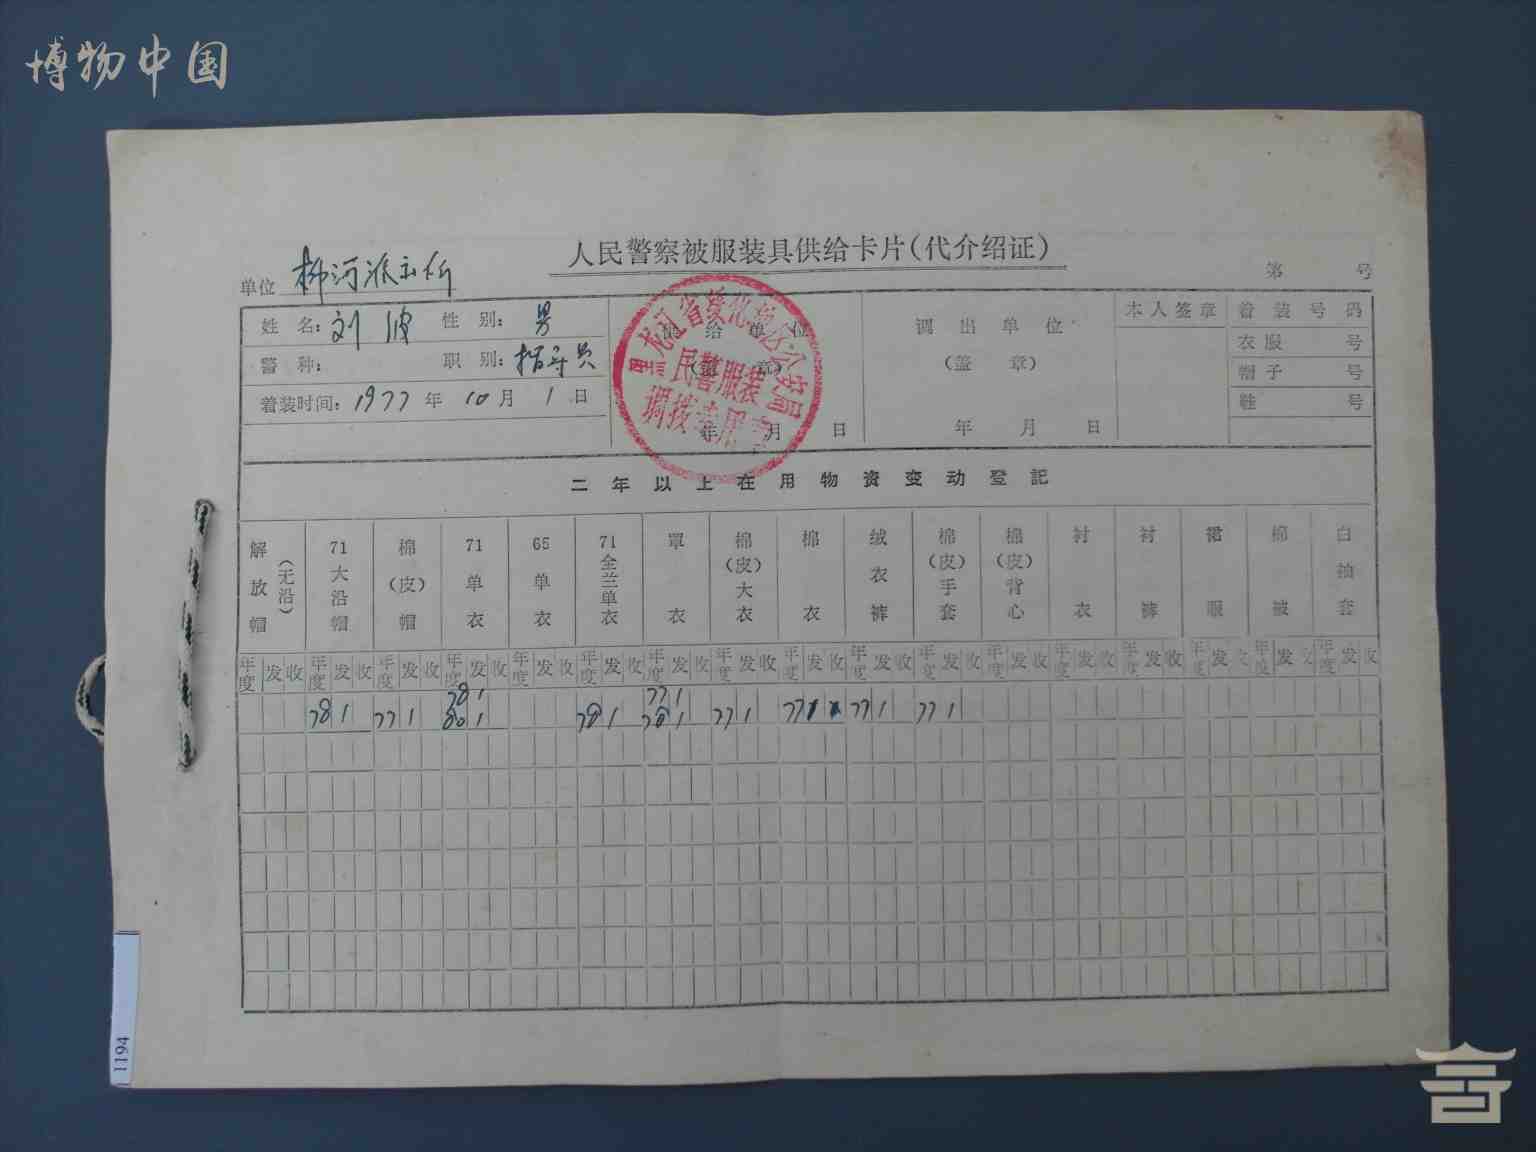 博物中国
人民警察被服装具供给卡片(代介绍证)
单位 柳河派出所
第 号
姓名: 刘波 性别: 男
警种: 职别: 指导员
着装时间: 1977年10月1日
供给单位
(盖章)
年 月 日
黑龙江省绥化地区公安局
民警服装
调拨专用章
调出单位
(盖 章)
年 月 日
本人签章
着装号码
衣服 号
帽子 号
鞋 号
二年以上在用物资变动登記
解放帽(无沿) 71大沿帽 棉(皮)帽 71单衣 65单衣 71全兰单衣 罩衣 棉(皮)大衣 棉衣 绒衣裤 棉(皮)手套 棉(皮)背心 衬衣 衬裤 裙服 棉被 白袖套
年度 发 收 年度 发 收 年度 发 收 年度 发 收 年度 发 收 年度 发 收 年度 发 收 年度 发 收 年度 发 收 年度 发 收 年度 发 收 年度 发 收 年度 发 收 年度 发 收 年度 发 收 年度 发 收 年度 发 收
78 1 77 1
78 1 77 1 80 1 78 1 78 1 77 1 77 1 77 1 77 1
1194